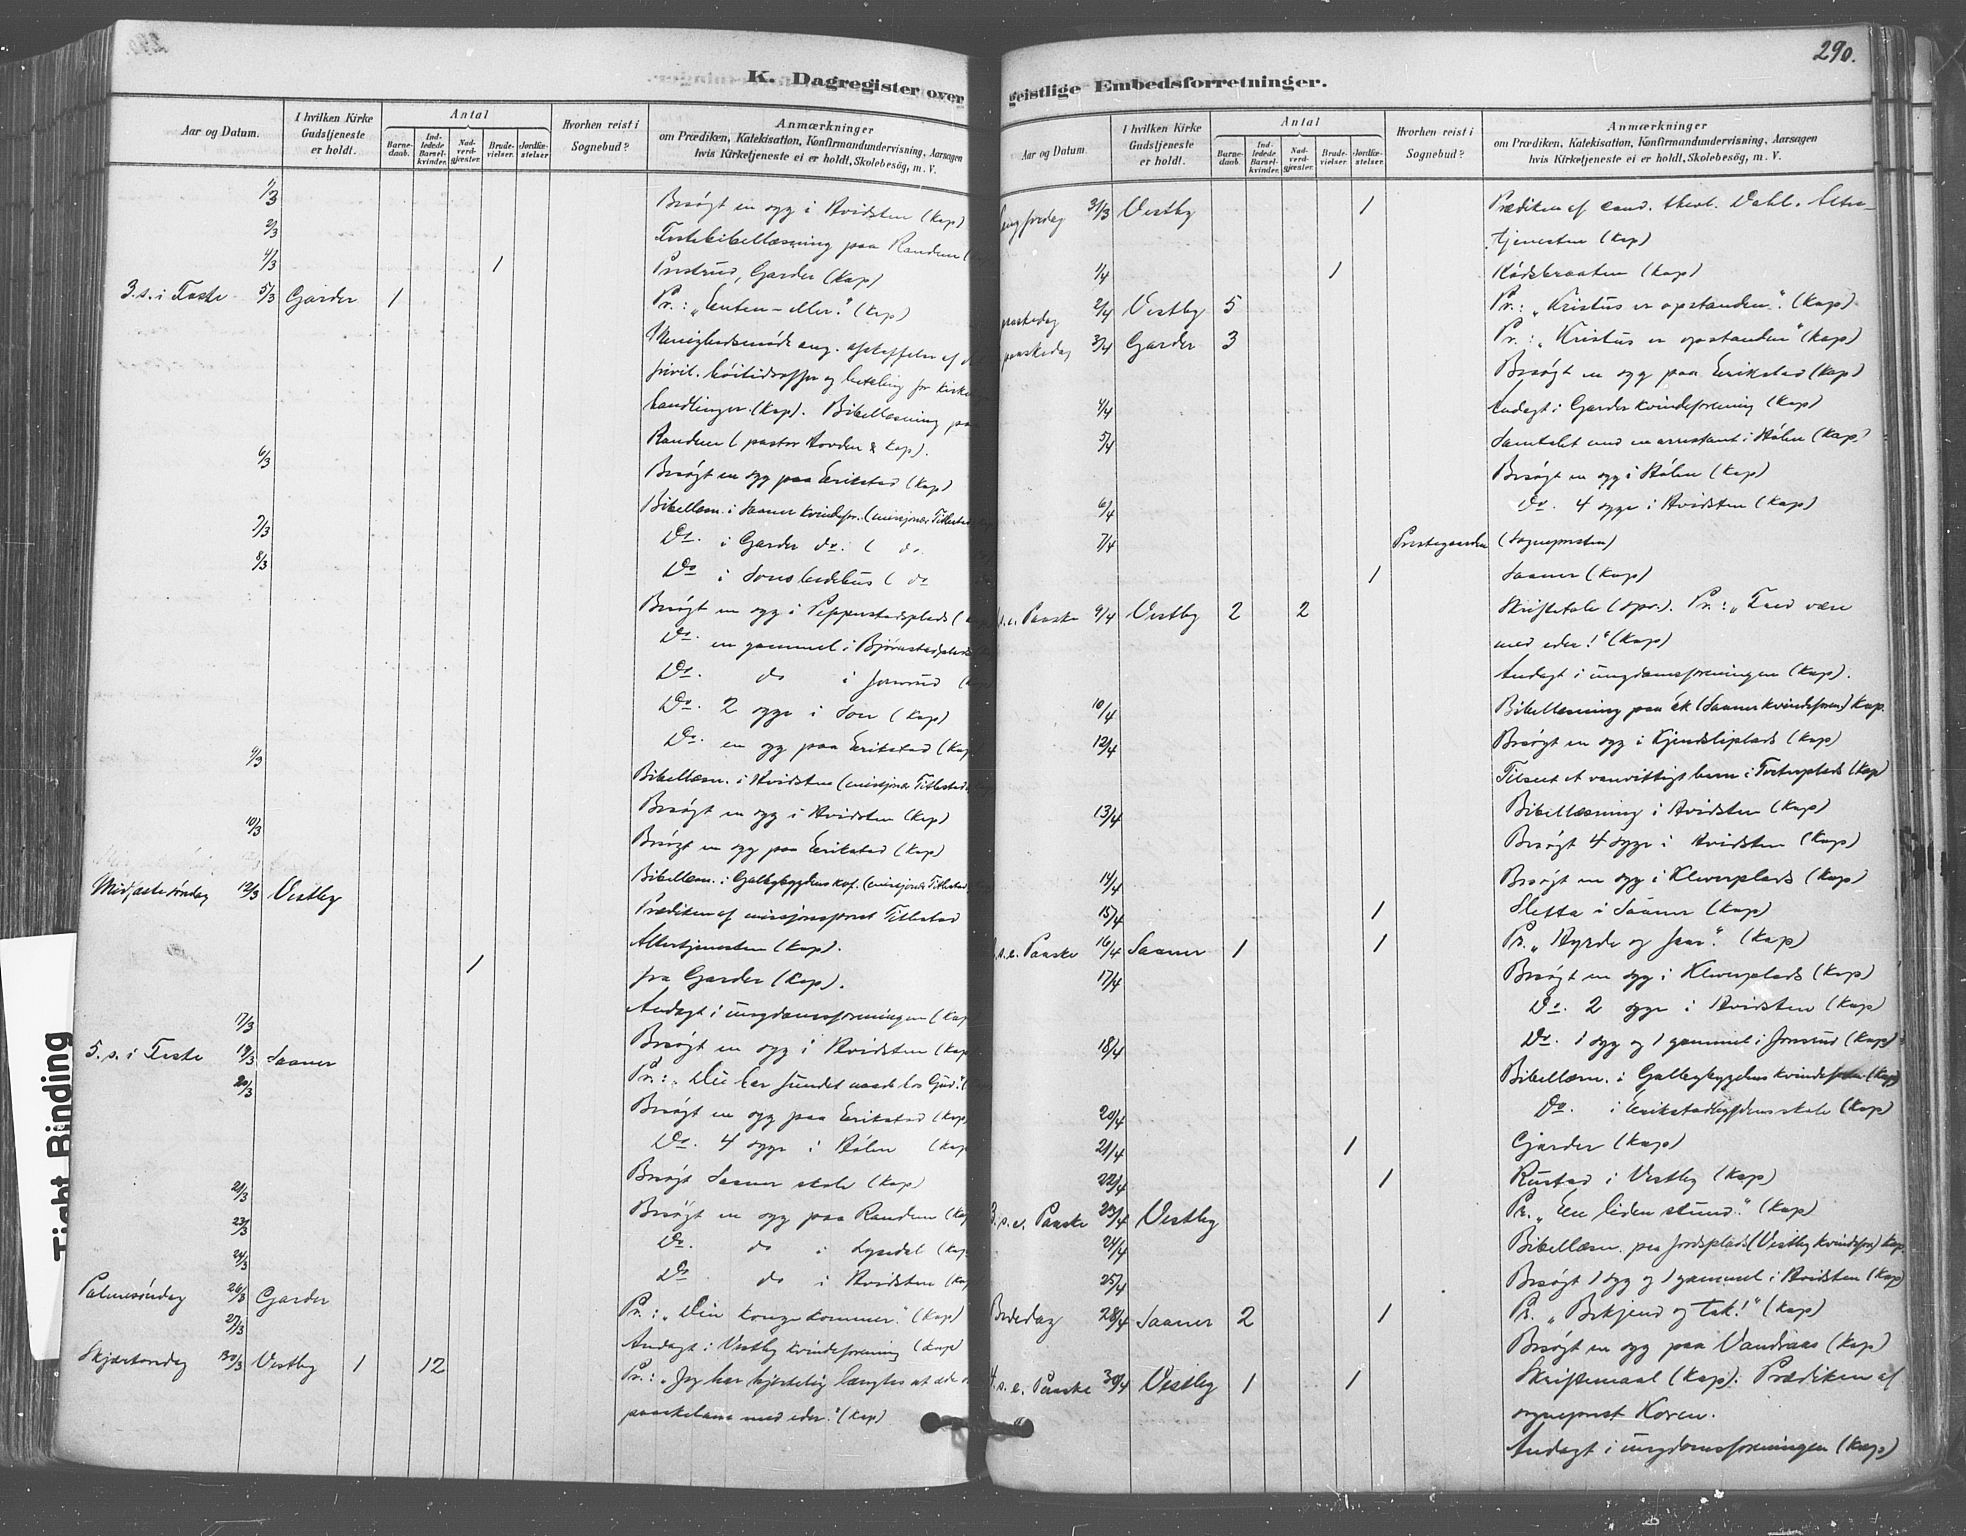 290.
K. Dagregister over geistlige Embedsforretninger.
Aar og Datum.
I hvilken Kirke Gudstjeneste er holdt.
Antal
Barnedaab.
Indledede Barselkvinder.
Nadverdgjæster.
Brudevielser.
Jordfæstelser.
Hvorhen reist i Sognebud?
Anmærkninger
om Prædiken, Katekisation, Konfirmandundervisning, Aarsagen
hvis Kirketjeneste ei er holdt, Skolebesøg, m. V.
1/3 Besøgt en syg i Hvidsten (Kap)
2/3 Fastebibellæsning paa Randem
4/3 1 Garder (Kap)
3. s. i Faste 5/3 Garder 1 Pr.: „Enten - eller." (Kap)
Menighedsmøde ang. afskaffelse af
frivil. høitidsoffer og betaling for kirke
handlinger. (Kap). Bibellæsning paa
Randem (pastor Hovden & Kap).
6/3 Besøgt en syg paa Erikstad (Kap)
Bibellæsn. i Saaner kvindefor. (missjonær Titlestad
7/3 Do. i Garder do. ( do.
8/3 Do i Sons bedehus ( do
Besøgt en syg i Pepperstadplads (
Do. en gammel i Bjørnstadplads
Do. do i Jonsrud
Do. 2 syge i Son (Kap)
9/3 Do. en syg paa Erikstad (Kap
Bibellæsn. i Hvidsten (missjonær Titlestad
10/3 Besøgt en syg i Hvidsten (Kap)
Besøgt en syg paa Erikstad (Kap)
Midfastesøndag 12/3 Vestby Bibellæsn. i Galbybygdens (missjonær Titlestad
Prædiken af missjonsprest Titlestad
Altertjenesten (Kap).
1 fra Garder (Kap).
Andagt i ungdomsforeningen (Kap
17/3 Besøgt en syg i Hvidsten (Kap
5. s. i Faste 19/3 Saaner Pr.: „Du har fundet naade hos Gud."
20/3 Besøgt en syg paa Erikstad (Kap
Do. 4 syge i Hølen (Kap
Besøgt Saaner skole (Kap)
21/3 Besøgt en syg paa Randem (Kap
23/3 Do. do i Lysedal (Kap
24/3 Do do i Hvidsten (Kap
Palmesøndag 26/3 Garder Pr.: „Din konge kommer." (Kap)
27/3 Andagt i Vestby kvindeforening (Kap)
Skjærtorsdag 30/3 Vestby 1 12 Pr.: „Jeg har hjertelig længtes at æde
paaskelam med eder." (Kap)
Aar og Datum.
I hvilken Kirke Gudstjeneste er holdt.
Antal
Barnedaab.
Indledede Barselkvinder.
Nadverdgjæster.
Brudevielser.
Jordfæstelser.
Hvorhen reist i Sognebud?
Anmærkninger
om Prædiken, Katekisation, Konfirmandundervisning, Aarsagen
hvis Kirketjeneste ei er holdt, Skolebesøg, m. V.
langfredag 31/3 Vestby 1 Prædiken af cand. theol. Dahl. Alter-
tjenesten (Kap)
1/4 1 Kødsbraaten (Kap)
paaskedag 2/4 Vestby 5 Pr.: „Kristus er opstanden". (Kap)
paaskedag 3/4 Garder 3 Pr.: „Kristus er opstanden" (Kap)
Besøgt en syg paa Erikstad (Kap)
4/4 Andagt i Garder kvindeforening (Kap)
5/4 Samtalet med en arrestant i Hølen (Kap)
Besøgt en syg i Hølen (Kap)
6/4 Do. 4 syge i Hvidsten (Kap)
7/4 Prestegaarden (Sognepresten)
1 Saaner (Kap)
1. s. e. Paaske 9/4 Vestby 2 2 Skriftetale (Spr.). Pr.: „Fred være
med eder!" (Kap)
Andagt i ungdomsforeningen (Kap).
10/4 Bibellæsning paa Ek (Saaner kvindeforen) Kap.
12/4 Besøgt en syg i Kjendsliplads (Kap)
Tilseet et vanvittigt barn i Torterplads (Kap)
13/4 Bibellæsning i Hvidsten (Kap)
Besøgt 4 syge i Hvidsten (Kap)
14/4 Besøgt en syg i Kleverplads (Kap)
15/4 1 Sletta i Saaner (Kap)
s. e. Paaske 16/4 Saaner 1 1 Pr. „Hyrde og faar". (Kap)
17/4 Besøgt en syg i Kleverplads (Kap)
Do. 2 syge i Hvidsten (Kap)
18/4 Do. 1 syg og 1 gammel i Jonsrud (Kap)
Bibellæsn. i Galbybygdens kvindefor. (Kap)
20/4 Do. i Erikstadbygdens skole (Kap)
21/4 1 Garder (Kap)
22/4 1 Rustad i Vestby (Kap)
3. s. e. Paaske 23/4 Vestby Pr. „En liden stund". (Kap)
24/4 Bibellæsn. paa Jordsplads (Vestby kvindefor) Kap.
25/4 Besøgt 1 syg og 1 gammel i Hvidsten (Kap)
Bededag 28/4 Saaner 2 1 Pr. „Bekjend og tak!" (Kap)
Besøgt en syg paa Vandraas (Kap)
4. s. e. Paaske 30/4 Vestby 1 1 Skriftemaal (Kap). Prædiken af
sogneprest Koren.
Andagt i ungdomsforeningen (Kap)
Tight Binding